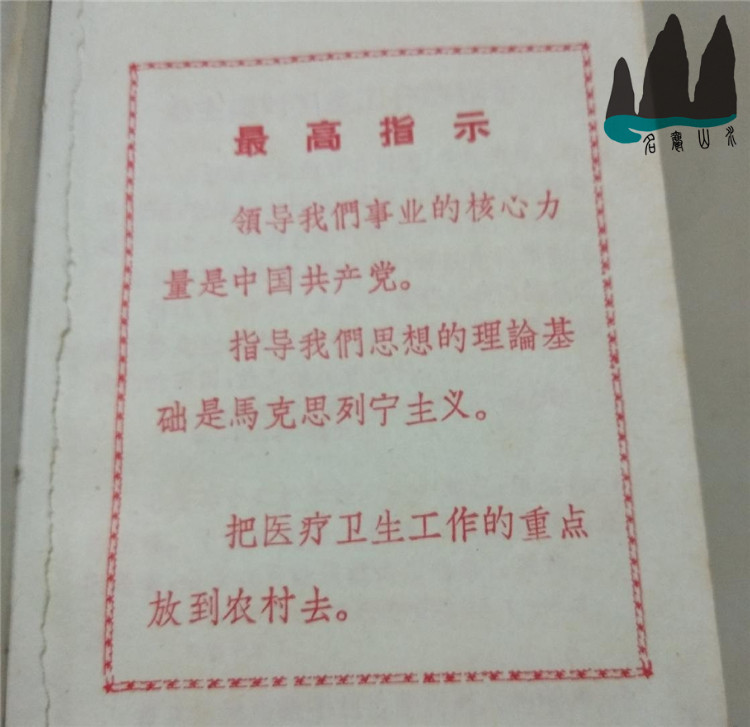 最高指示
領导我們事业的核心力
量是中国共产党。
指导我們思想的理論基
础是馬克思列宁主义。
把医疗卫生工作的重点
放到农村去。